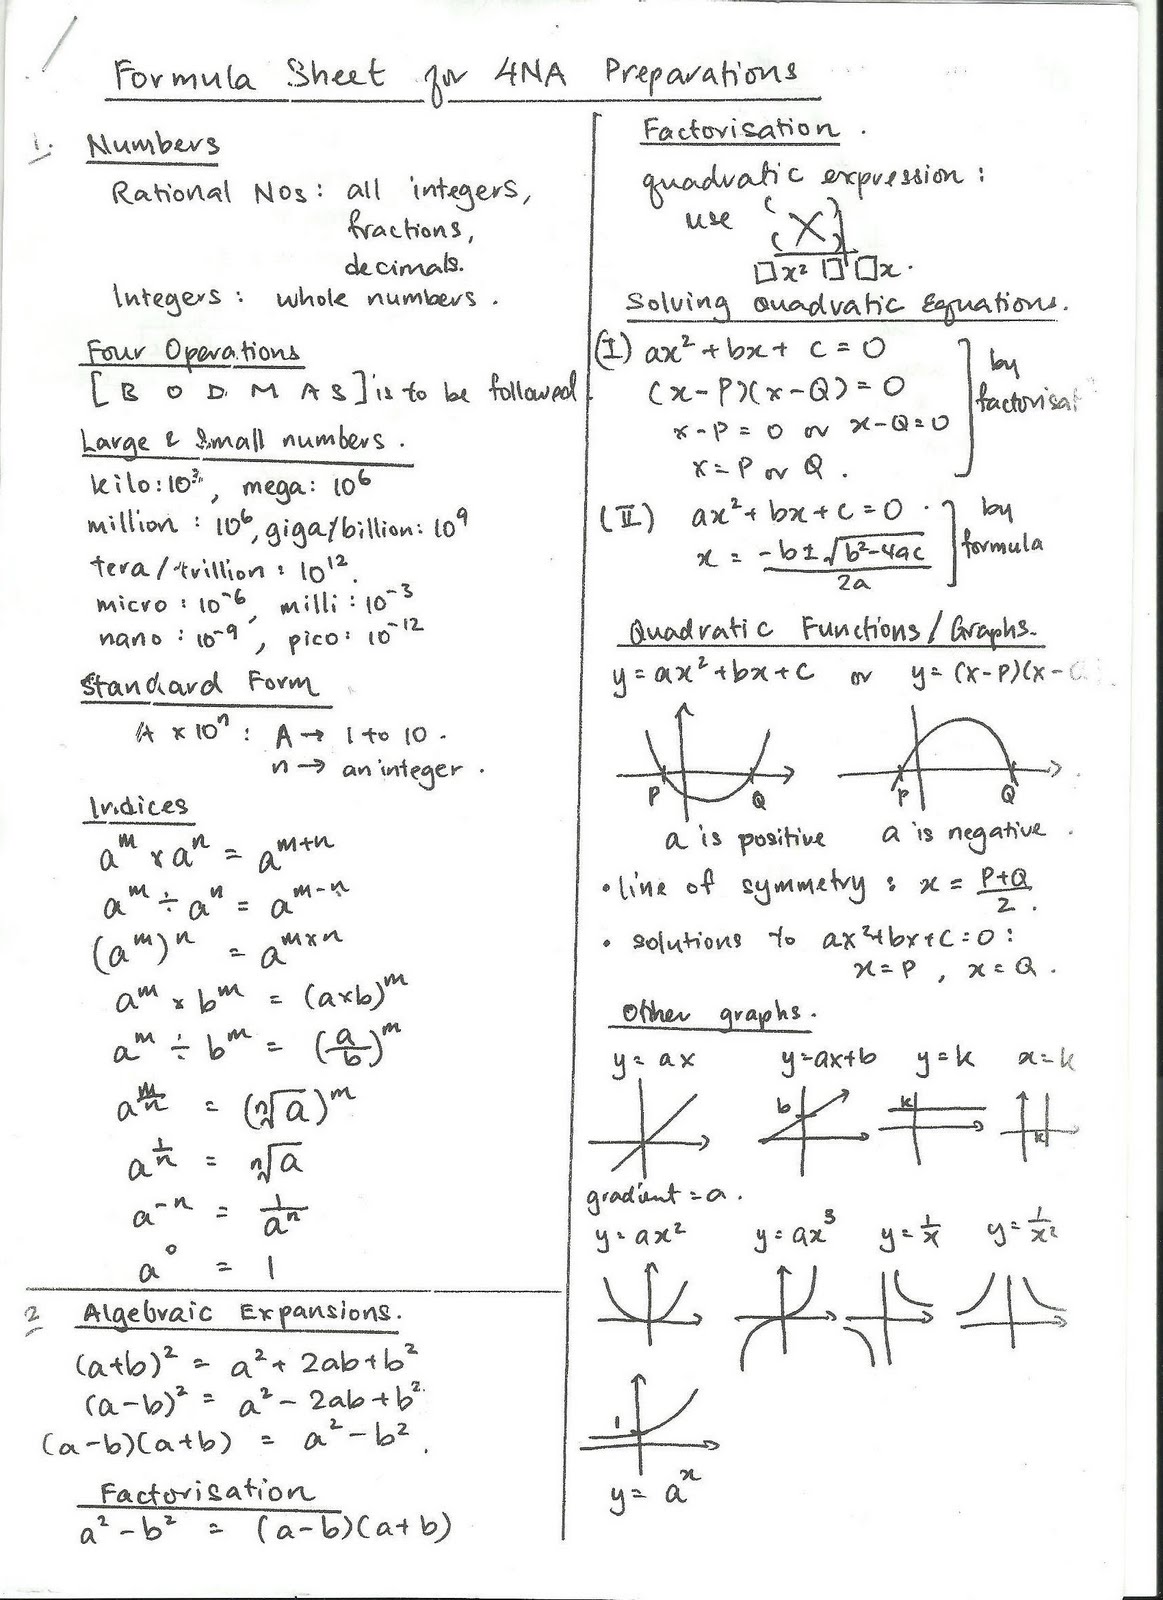 Formula Sheet for 4NA Preparations
1. Numbers
Rational Nos: all integers,
fractions,
decimals.
Integers: whole numbers.
Four Operations
[B O D M A S] is to be followed.
Large & Small numbers.
kilo: 10³, mega: 10⁶
million: 10⁶, giga/billion: 10⁹
tera/trillion: 10¹².
micro: 10⁻⁶, milli: 10⁻³
nano: 10⁻⁹, pico: 10⁻¹²
Standard Form
A × 10ⁿ: A → 1 to 10.
n → an integer.
Indices
a^m × a^n = a^(m+n)
a^m ÷ a^n = a^(m-n)
(a^m)^n = a^(m×n)
a^m × b^m = (a×b)^m
a^m ÷ b^m = (a/b)^m
a^(m/n) = (ⁿ√a)^m
a^(1/n) = ⁿ√a
a^(-n) = 1/a^n
a⁰ = 1
2 Algebraic Expansions.
(a+b)² = a² + 2ab + b²
(a-b)² = a² - 2ab + b²
(a-b)(a+b) = a² - b².
Factorisation
a² - b² = (a-b)(a+b)
Factorisation.
quadratic expression:
use ( X )
( )
□x² □ □x.
Solving Quadratic Equations.
(I) ax² + bx + c = 0 by
(x-P)(x-Q) = 0 factorisat
x-P = 0 or x-Q=0
x=P or Q.
(II) ax² + bx + c = 0. by
x = (-b±√(b²-4ac))/2a formula
Quadratic Functions/Graphs.
y = ax² + bx + c or y = (x-P)(x-
P Q P Q
a is positive a is negative.
• line of symmetry: x = (P+Q)/2.
• solutions to ax²+bx+c=0:
x=P, x=Q.
Other graphs.
y = ax y=ax+b y=k x=k
b k k
gradient = a.
y=ax² y=ax³ y=1/x y=1/x²
1
y = a^x